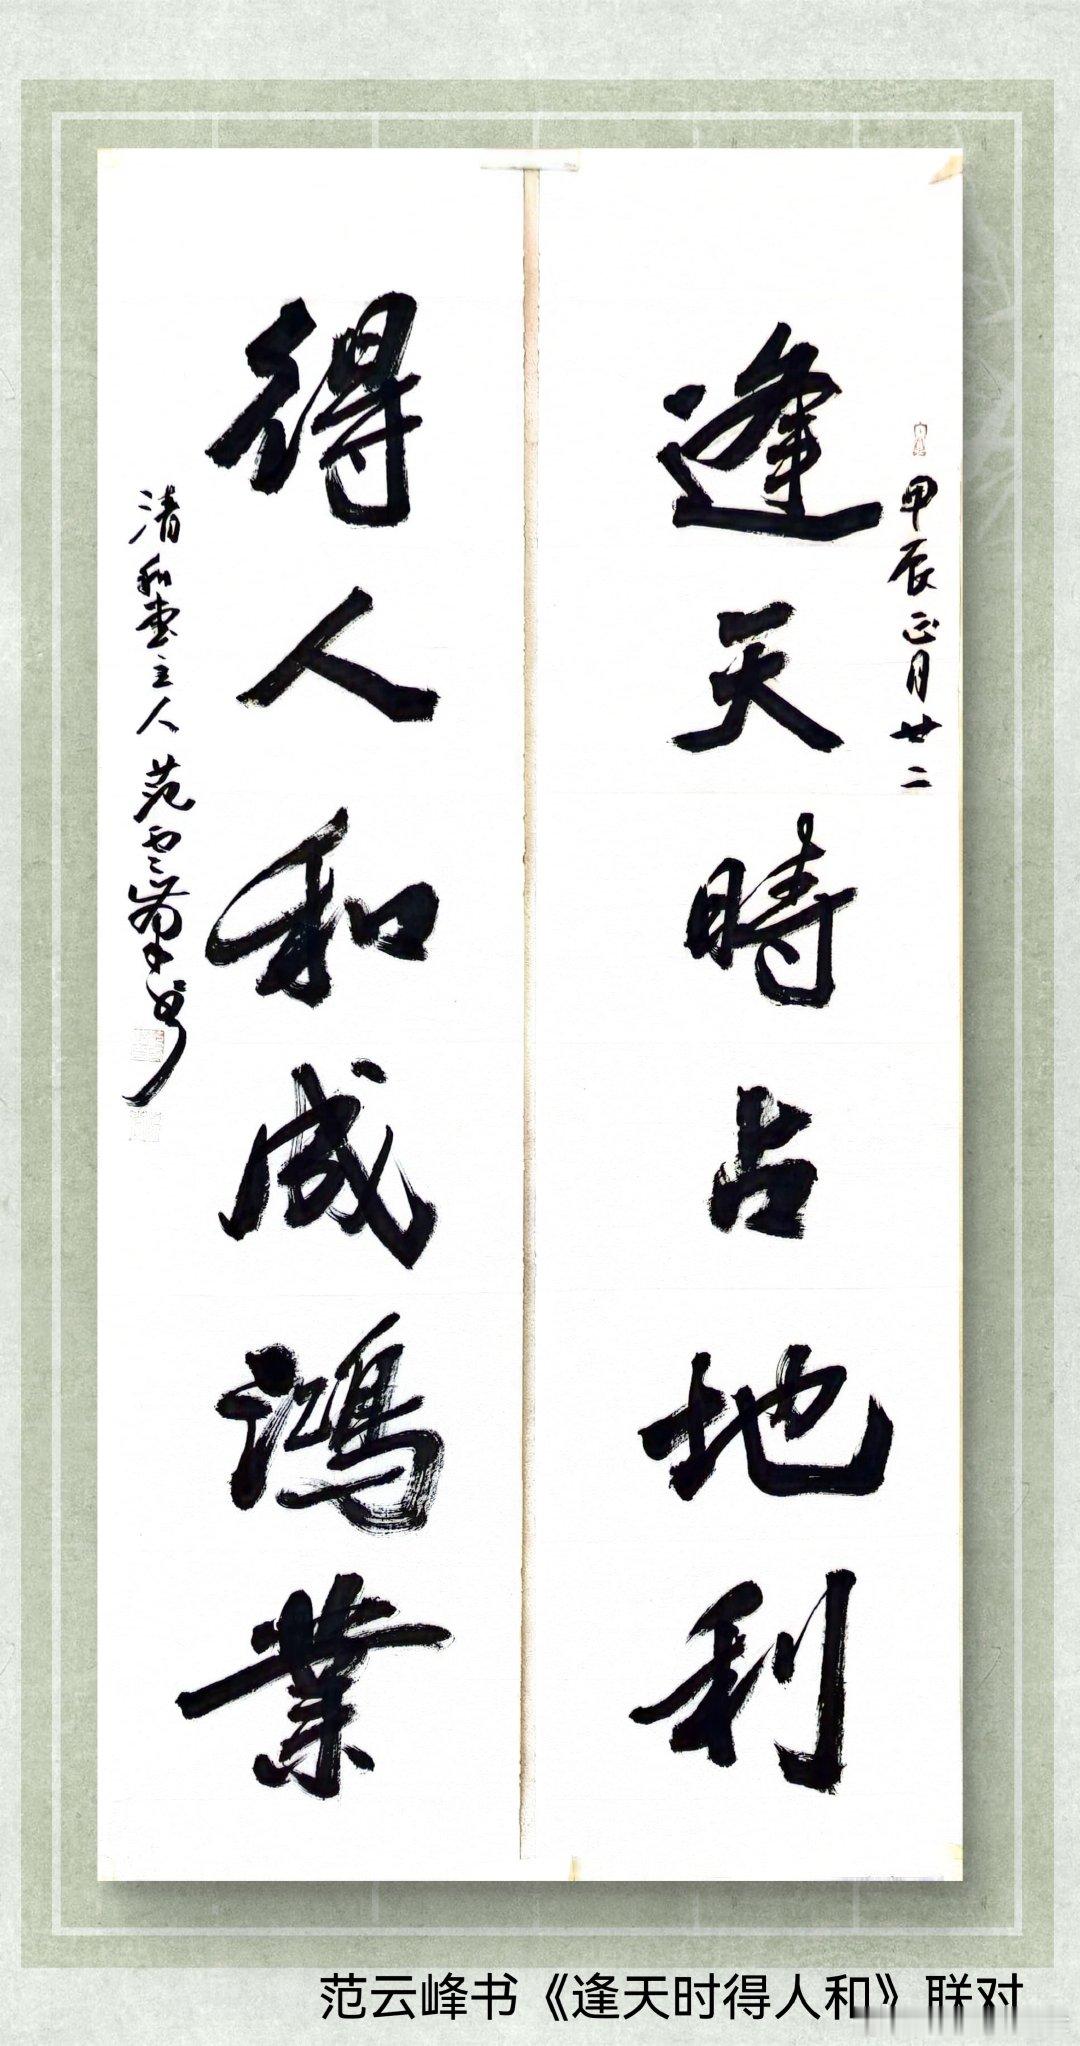 甲辰正月廿二
逢天時占地利
得人和成鴻業
清和堂主人范雲峯书
范云峰书《逢天时得人和》联对